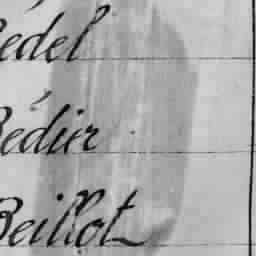 Bedel
Bédier
Beillot